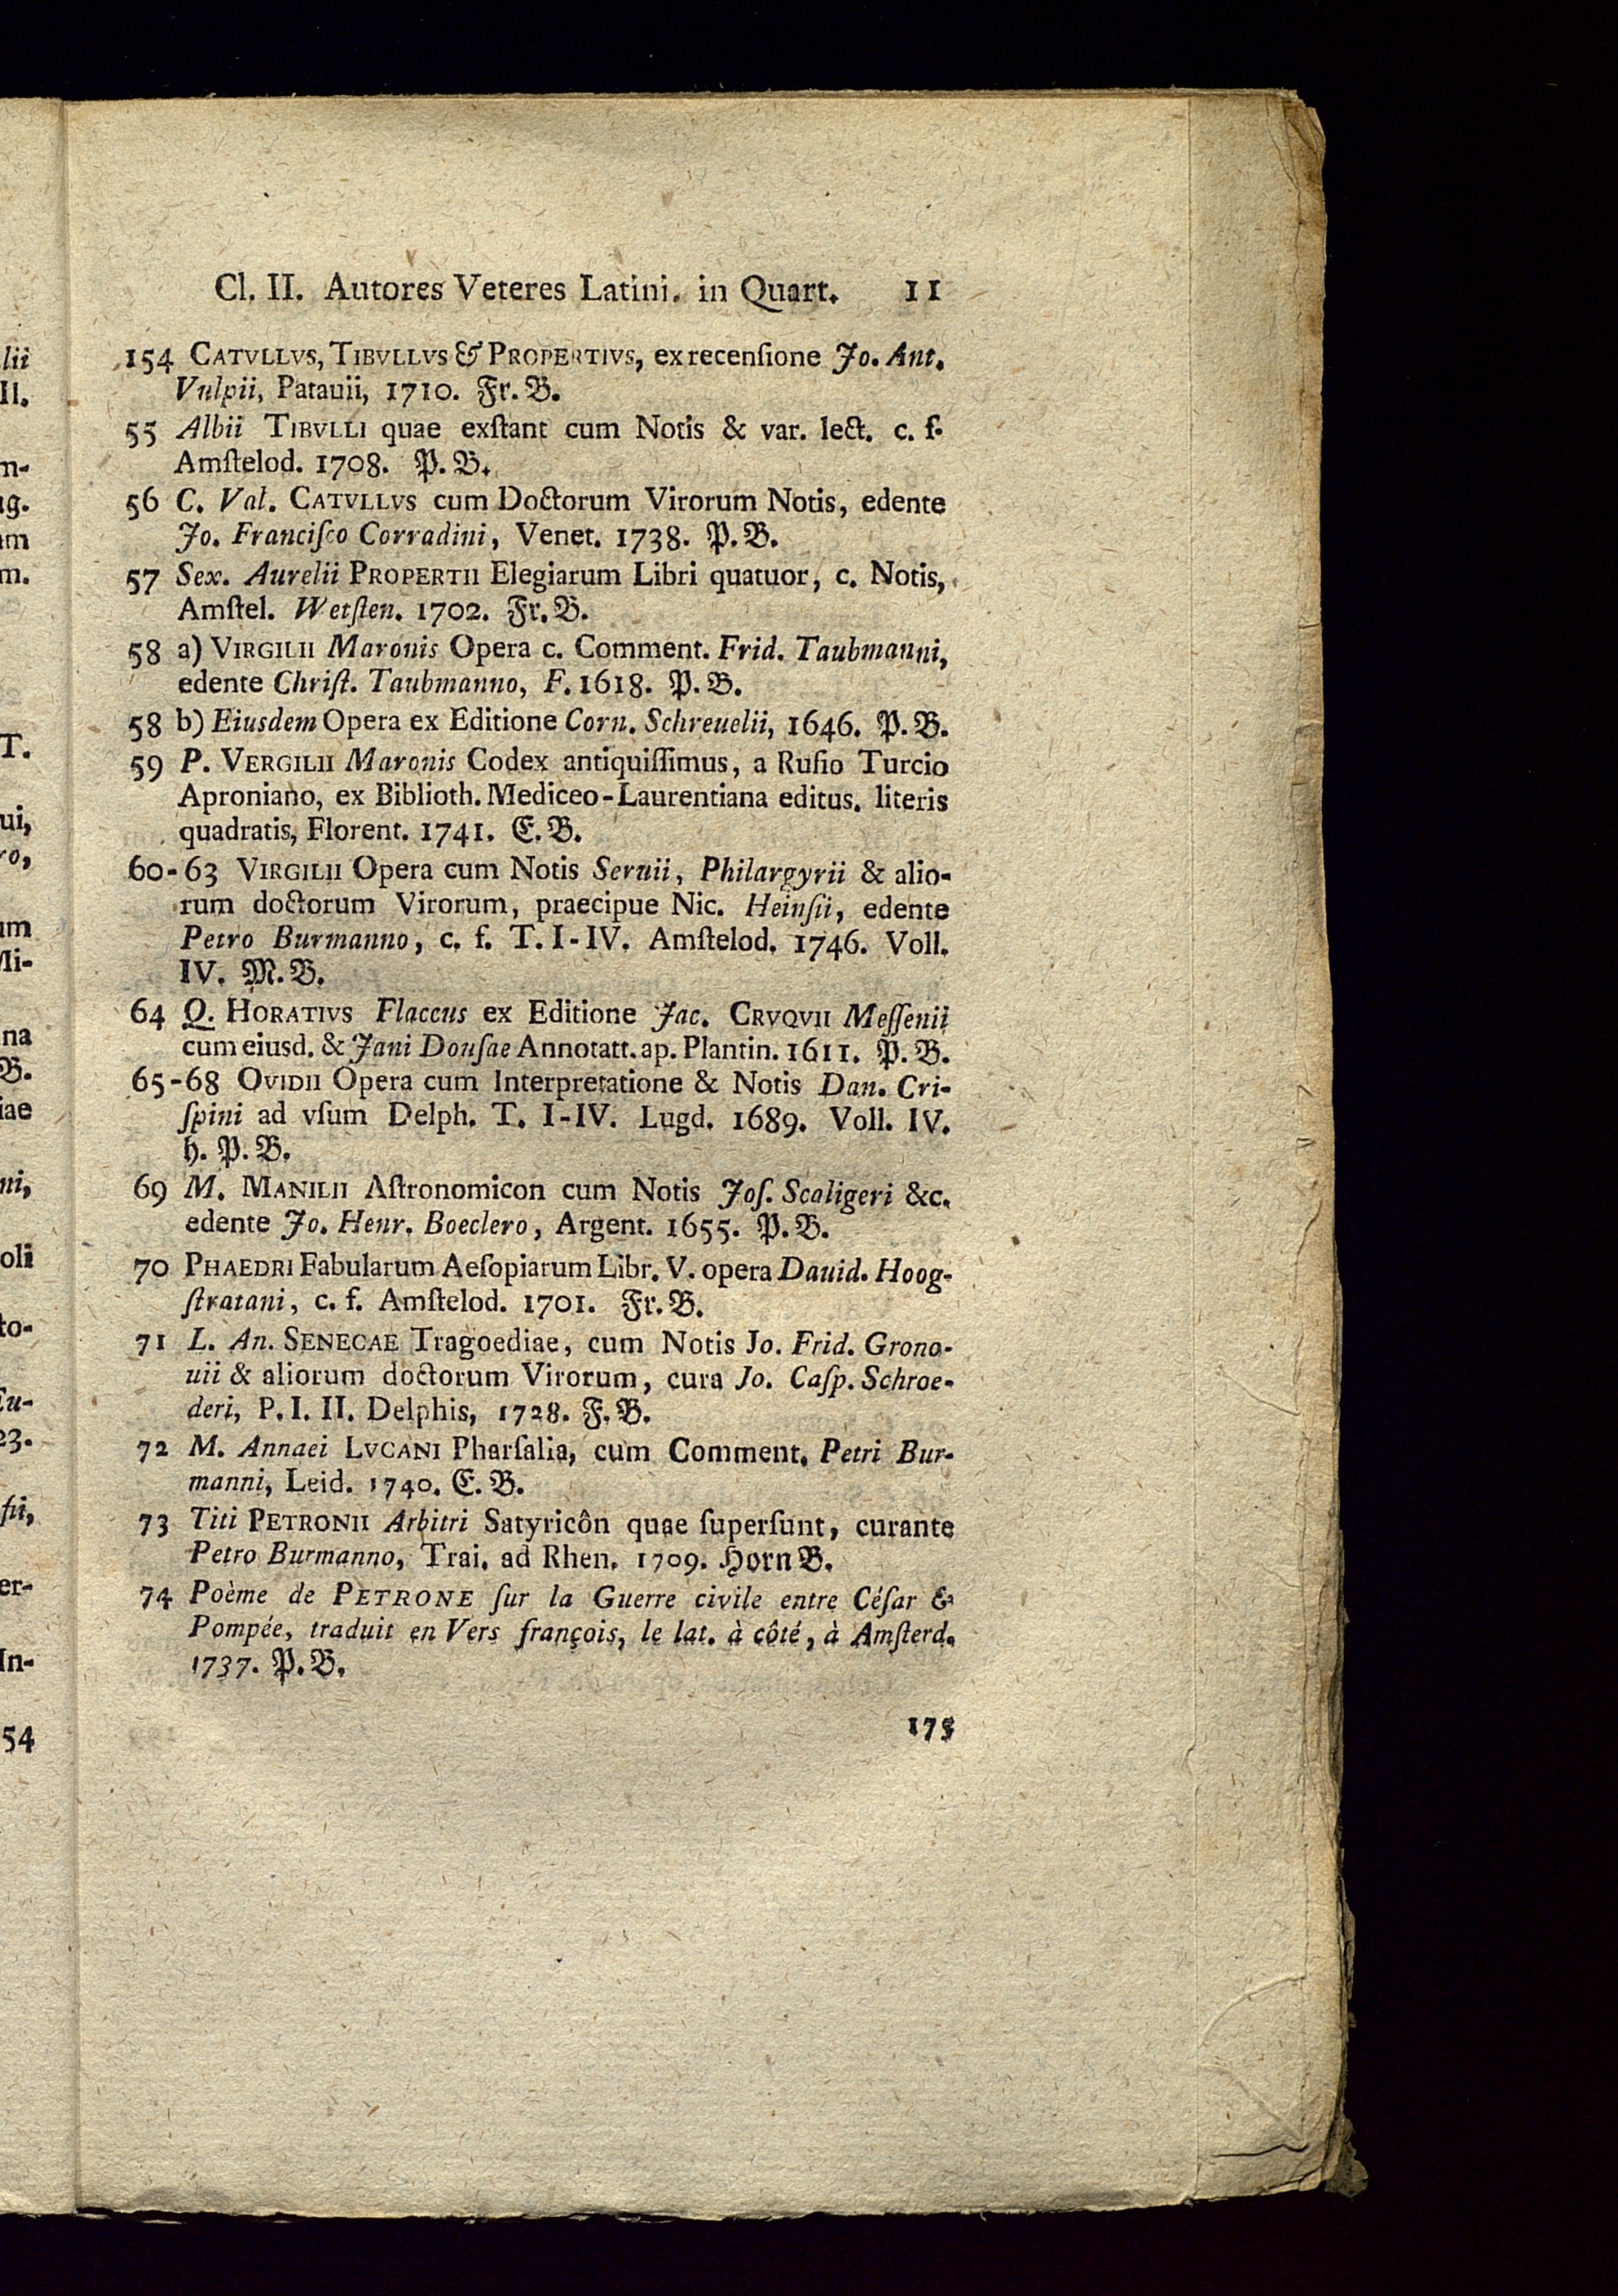 Cl. II. Autores Veteres Latini. in Quart. 11
154 CATVLLVS, TIBVLLVS & PROPERTIVS, ex recenſione Jo. Ant.
Vulpii, Patauii, 1710. Fr. B.
55 Albii TIBVLLI quae exſtant cum Notis & var. lect. c. f.
Amſtelod. 1708. P. B.
56 C. Val. CATVLLVS cum Doctorum Virorum Notis, edente
Jo. Franciſco Corradini, Venet. 1738. P. B.
57 Sex. Aurelii PROPERTII Elegiarum Libri quatuor, c. Notis,
Amſtel. Wetſten. 1702. Fr. B.
58 a) VIRGILII Maronis Opera c. Comment. Frid. Taubmanni,
edente Chriſt. Taubmanno, F. 1618. P. B.
58 b) Eiusdem Opera ex Editione Corn. Schreuelii, 1646. P. B.
59 P. VERGILII Maronis Codex antiquiſſimus, a Rufio Turcio
Aproniano, ex Biblioth. Mediceo-Laurentiana editus. literis
quadratis, Florent. 1741. E. B.
60-63 VIRGILII Opera cum Notis Seruii, Philargyrii & alio-
rum doctorum Virorum, praecipue Nic. Heinſii, edente
Petro Burmanno, c. f. T. I-IV. Amſtelod. 1746. Voll.
IV. M. B.
64 Q. HORATIVS Flaccus ex Editione Jac. CRVQVII Meſſenii
cum eiusd. & Jani Douſae Annotatt. ap. Plantin. 1611. P. B.
65-68 OVIDII Opera cum Interpretatione & Notis Dan. Cri-
ſpini ad vſum Delph. T. I-IV. Lugd. 1689. Voll. IV.
h. P. B.
69 M. MANILII Aſtronomicon cum Notis Joſ. Scaligeri &c.
edente Jo. Henr. Boeclero, Argent. 1655. P. B.
70 PHAEDRI Fabularum Aeſopiarum Libr. V. opera Dauid. Hoog-
ſtratani, c. f. Amſtelod. 1701. Fr. B.
71 L. An. SENECAE Tragoediae, cum Notis Jo. Frid. Grono-
uii & aliorum doctorum Virorum, cura Jo. Caſp. Schroe-
deri, P. I. II. Delphis, 1728. F. B.
72 M. Annaei LVCANI Pharſalia, cum Comment. Petri Bur-
manni, Leid. 1740. E. B.
73 Titi PETRONII Arbitri Satyricôn quae ſuperſunt, curante
Petro Burmanno, Trai. ad Rhen. 1709. Horn B.
74 Poème de PETRONE ſur la Guerre civile entre Céſar &
Pompée, traduit en Vers françois, le lat. à côté, à Amſterd.
1737. P. B.
175